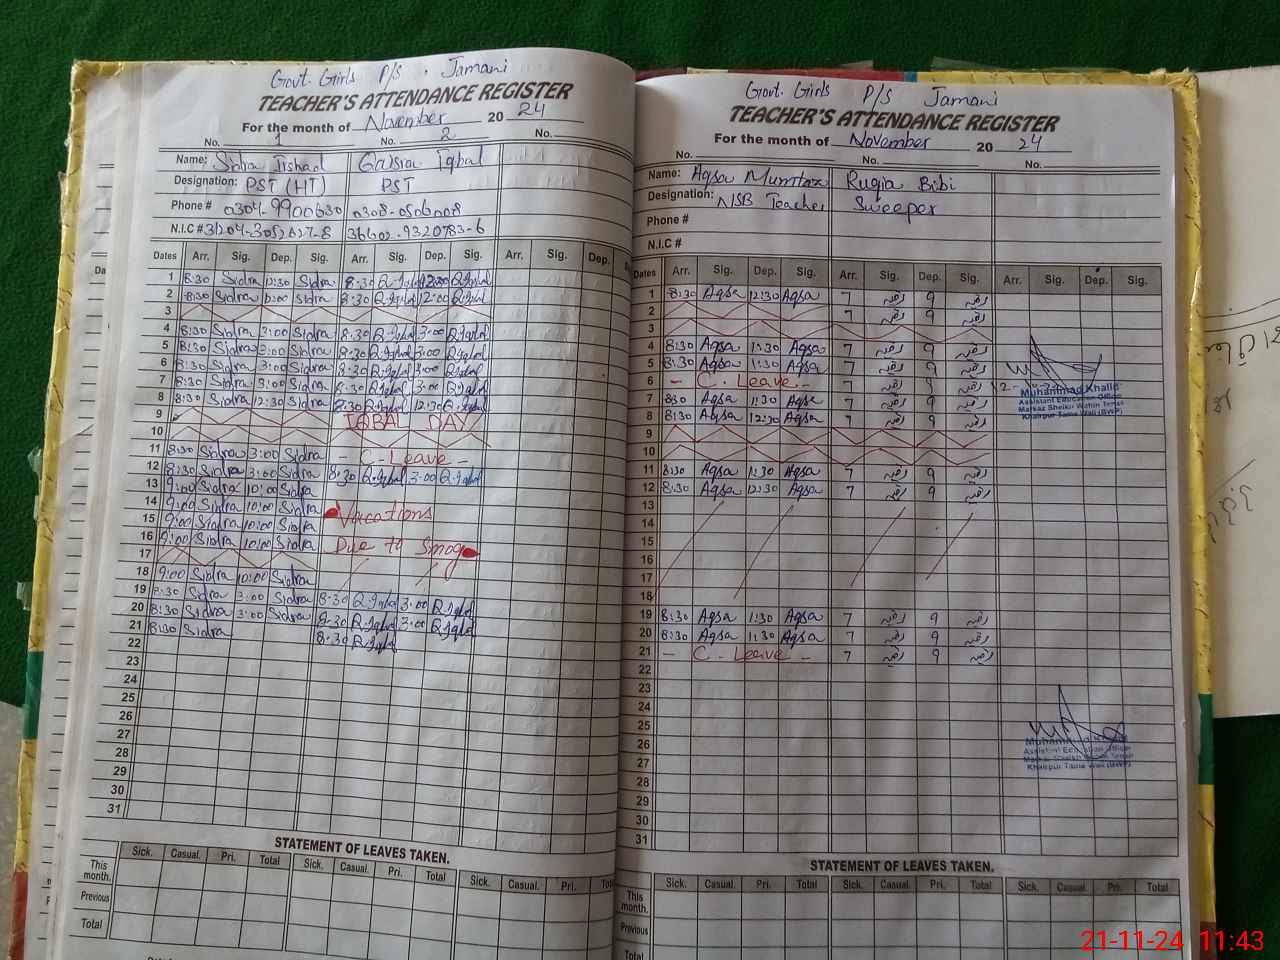 Govt. Girls P/S . Jamani
TEACHER'S ATTENDANCE REGISTER
For the month of November 20 24
No. 1 No. 2 No.
Name: Sidra Irshad
Designation: PST (HT) PST
Phone #
N.I.C #
Dates Arr. Sig. Dep. Sig. Arr. Sig. Dep. Sig. Arr. Sig. Dep.
1 8:30 Sidra 12:30 Sidra 8:30 Q.Iqbal 12:30 Q.Iqbal
2 8:30 Sidra 12:00 Sidra 8:30 Q.Iqbal 12:00 Q.Iqbal
3
4 8:30 Sidra 3:00 Sidra 8:30 Q.Iqbal 3:00 Q.Iqbal
5 8:30 Sidra 3:00 Sidra 8:30 Q.Iqbal 3:00 Q.Iqbal
6 8:30 Sidra 3:00 Sidra 8:30 Q.Iqbal 3:00 Q.Iqbal
7 8:30 Sidra 3:00 Sidra 8:30 Q.Iqbal 3:00 Q.Iqbal
8 8:30 Sidra 12:30 Sidra 8:30 Q.Iqbal 12:30 Q.Iqbal
9 IQBAL DAY
10
11 8:30 Sidra 3:00 Sidra - C-Leave -
12 8:30 Sidra 3:00 Sidra 8:30 Q.Iqbal 3:00 Q.Iqbal
13 9:00 Sidra 10:00 Sidra
14 9:00 Sidra 10:00 Sidra Vacations
15 9:00 Sidra 10:00 Sidra
16 9:00 Sidra 10:00 Sidra Due to Smog
17
18 9:00 Sidra 10:00 Sidra
19 8:30 Sidra 3:00 Sidra 8:30 Q.Iqbal 3:00 Q.Iqbal
20 8:30 Sidra 3:00 Sidra 8:30 Q.Iqbal 3:00 Q.Iqbal
21 8:30 Sidra 8:30 Q.Iqbal
22
23
24
25
26
27
28
29
30
31
STATEMENT OF LEAVES TAKEN.
Sick. Casual. Pri. Total Sick. Casual. Pri. Total Sick. Casual. Pri.
This month.
Previous
Total
Govt. Girls P/S Jamani
TEACHER'S ATTENDANCE REGISTER
For the month of November 20 24
No. No. No.
Name: Aqsa Mumtaz Ruqia Bibi
Designation: NSB Teacher Sweeper
Phone #
N.I.C #
Dates Arr. Sig. Dep. Sig. Arr. Sig. Dep. Sig. Arr. Sig. Dep. Sig.
1 8:30 Aqsa 12:30 Aqsa 7 رقیہ 9 رقیہ
2 7 رقیہ 9 رقیہ
3
4 8:30 Aqsa 1:30 Aqsa 7 رقیہ 9 رقیہ
5 8:30 Aqsa 1:30 Aqsa 7 رقیہ 9 رقیہ
6 - C. Leave - 7 رقیہ 9 رقیہ
7 8:30 Aqsa 11:30 Aqsa 7 رقیہ 9 رقیہ
8 8:30 Aqsa 12:30 Aqsa 7 رقیہ 9 رقیہ
9
10
11 8:30 Aqsa 1:30 Aqsa 7 رقیہ 9 رقیہ
12 8:30 Aqsa 12:30 Aqsa 7 رقیہ 9 رقیہ
13
14
15
16
17
18
19 8:30 Aqsa 1:30 Aqsa 7 رقیہ 9 رقیہ
20 8:30 Aqsa 11:30 Aqsa 7 رقیہ 9 رقیہ
21 - C. Leave - 7 رقیہ 9 رقیہ
22
23
24
25
26
27
28
29
30
31
Muhammad Khalid
Assistant Education Officer
STATEMENT OF LEAVES TAKEN.
Sick. Casual. Pri. Total Sick. Casual. Pri. Total Sick. Casual. Pri. Total
This month.
Previous
Total
21-11-24 11:43